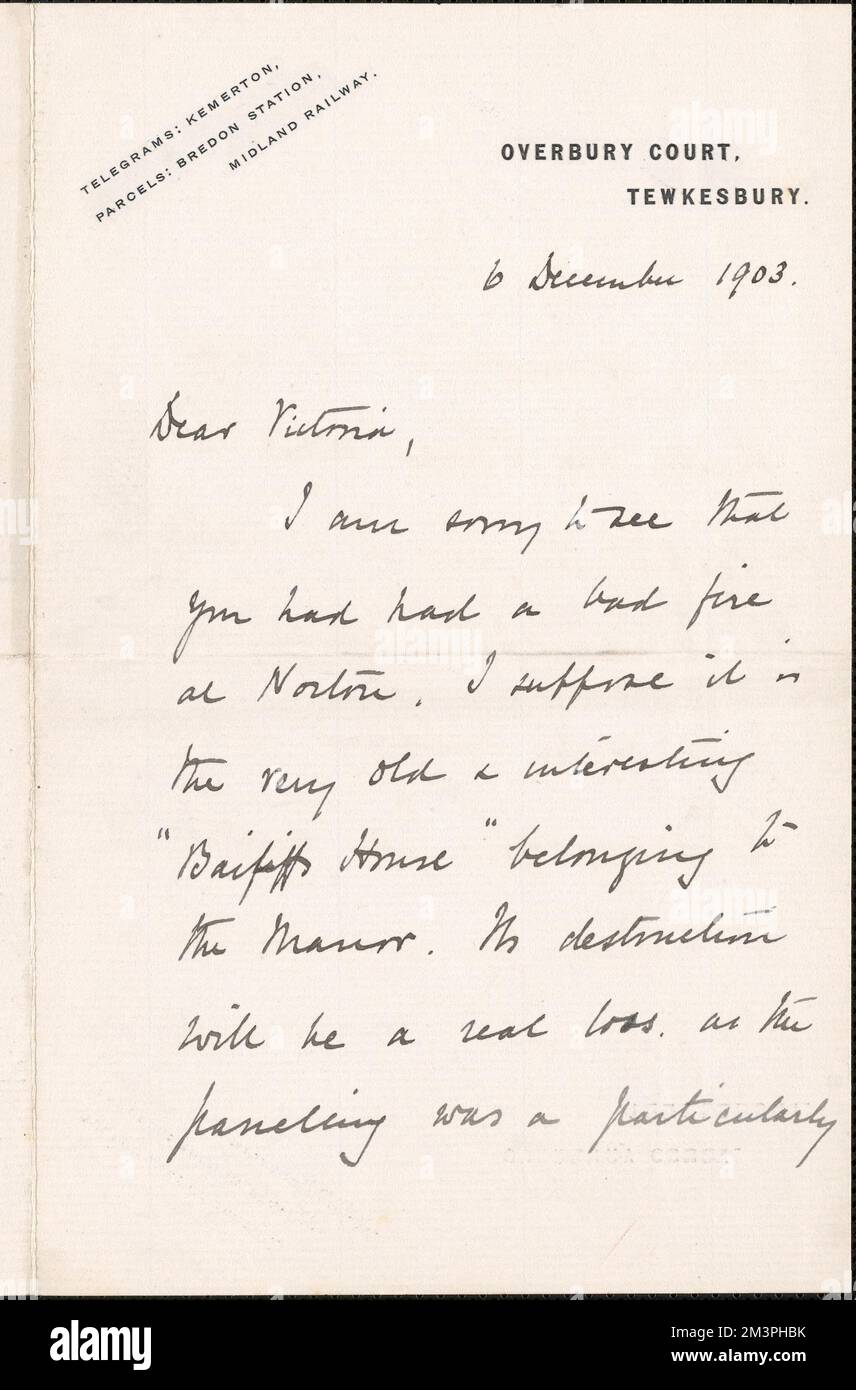 TELEGRAMS: KEMERTON,
PARCELS: BREDON STATION,
MIDLAND RAILWAY.
OVERBURY COURT,
TEWKESBURY.
6 December 1903.
Dear Victoria,
I am sorry to see that
you had had a bad fire
at Norton. I suppose it is
the very old & interesting
"Bailiffs House" belonging to
the Manor. Its destruction
will be a real loss. as the
panelling was a particularly
alamy
Image ID: 2M3PHBK
www.alamy.com